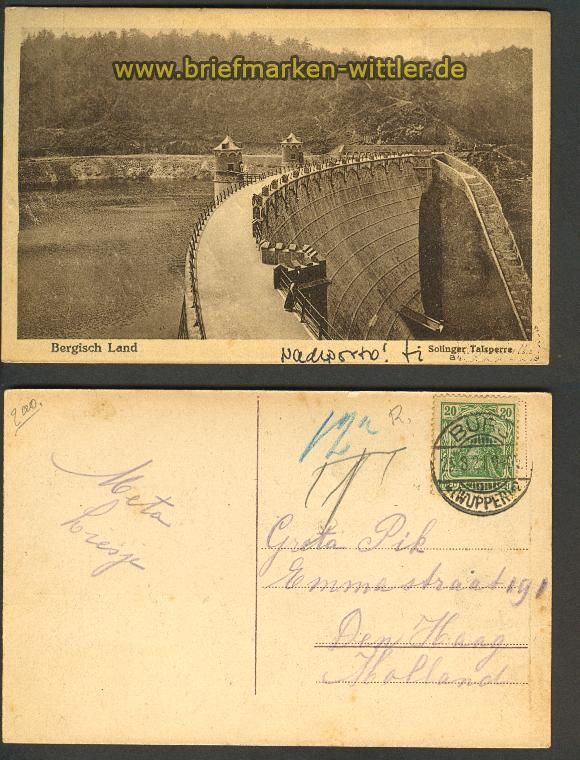 www.briefmarken-wittler.de
Bergisch Land
Nachporto!
Solinger Talsperre
R.
20 20
BURG
(WUPPER)
Meta
Greta Pik
Emmastraat 191
Den Haag
Holland